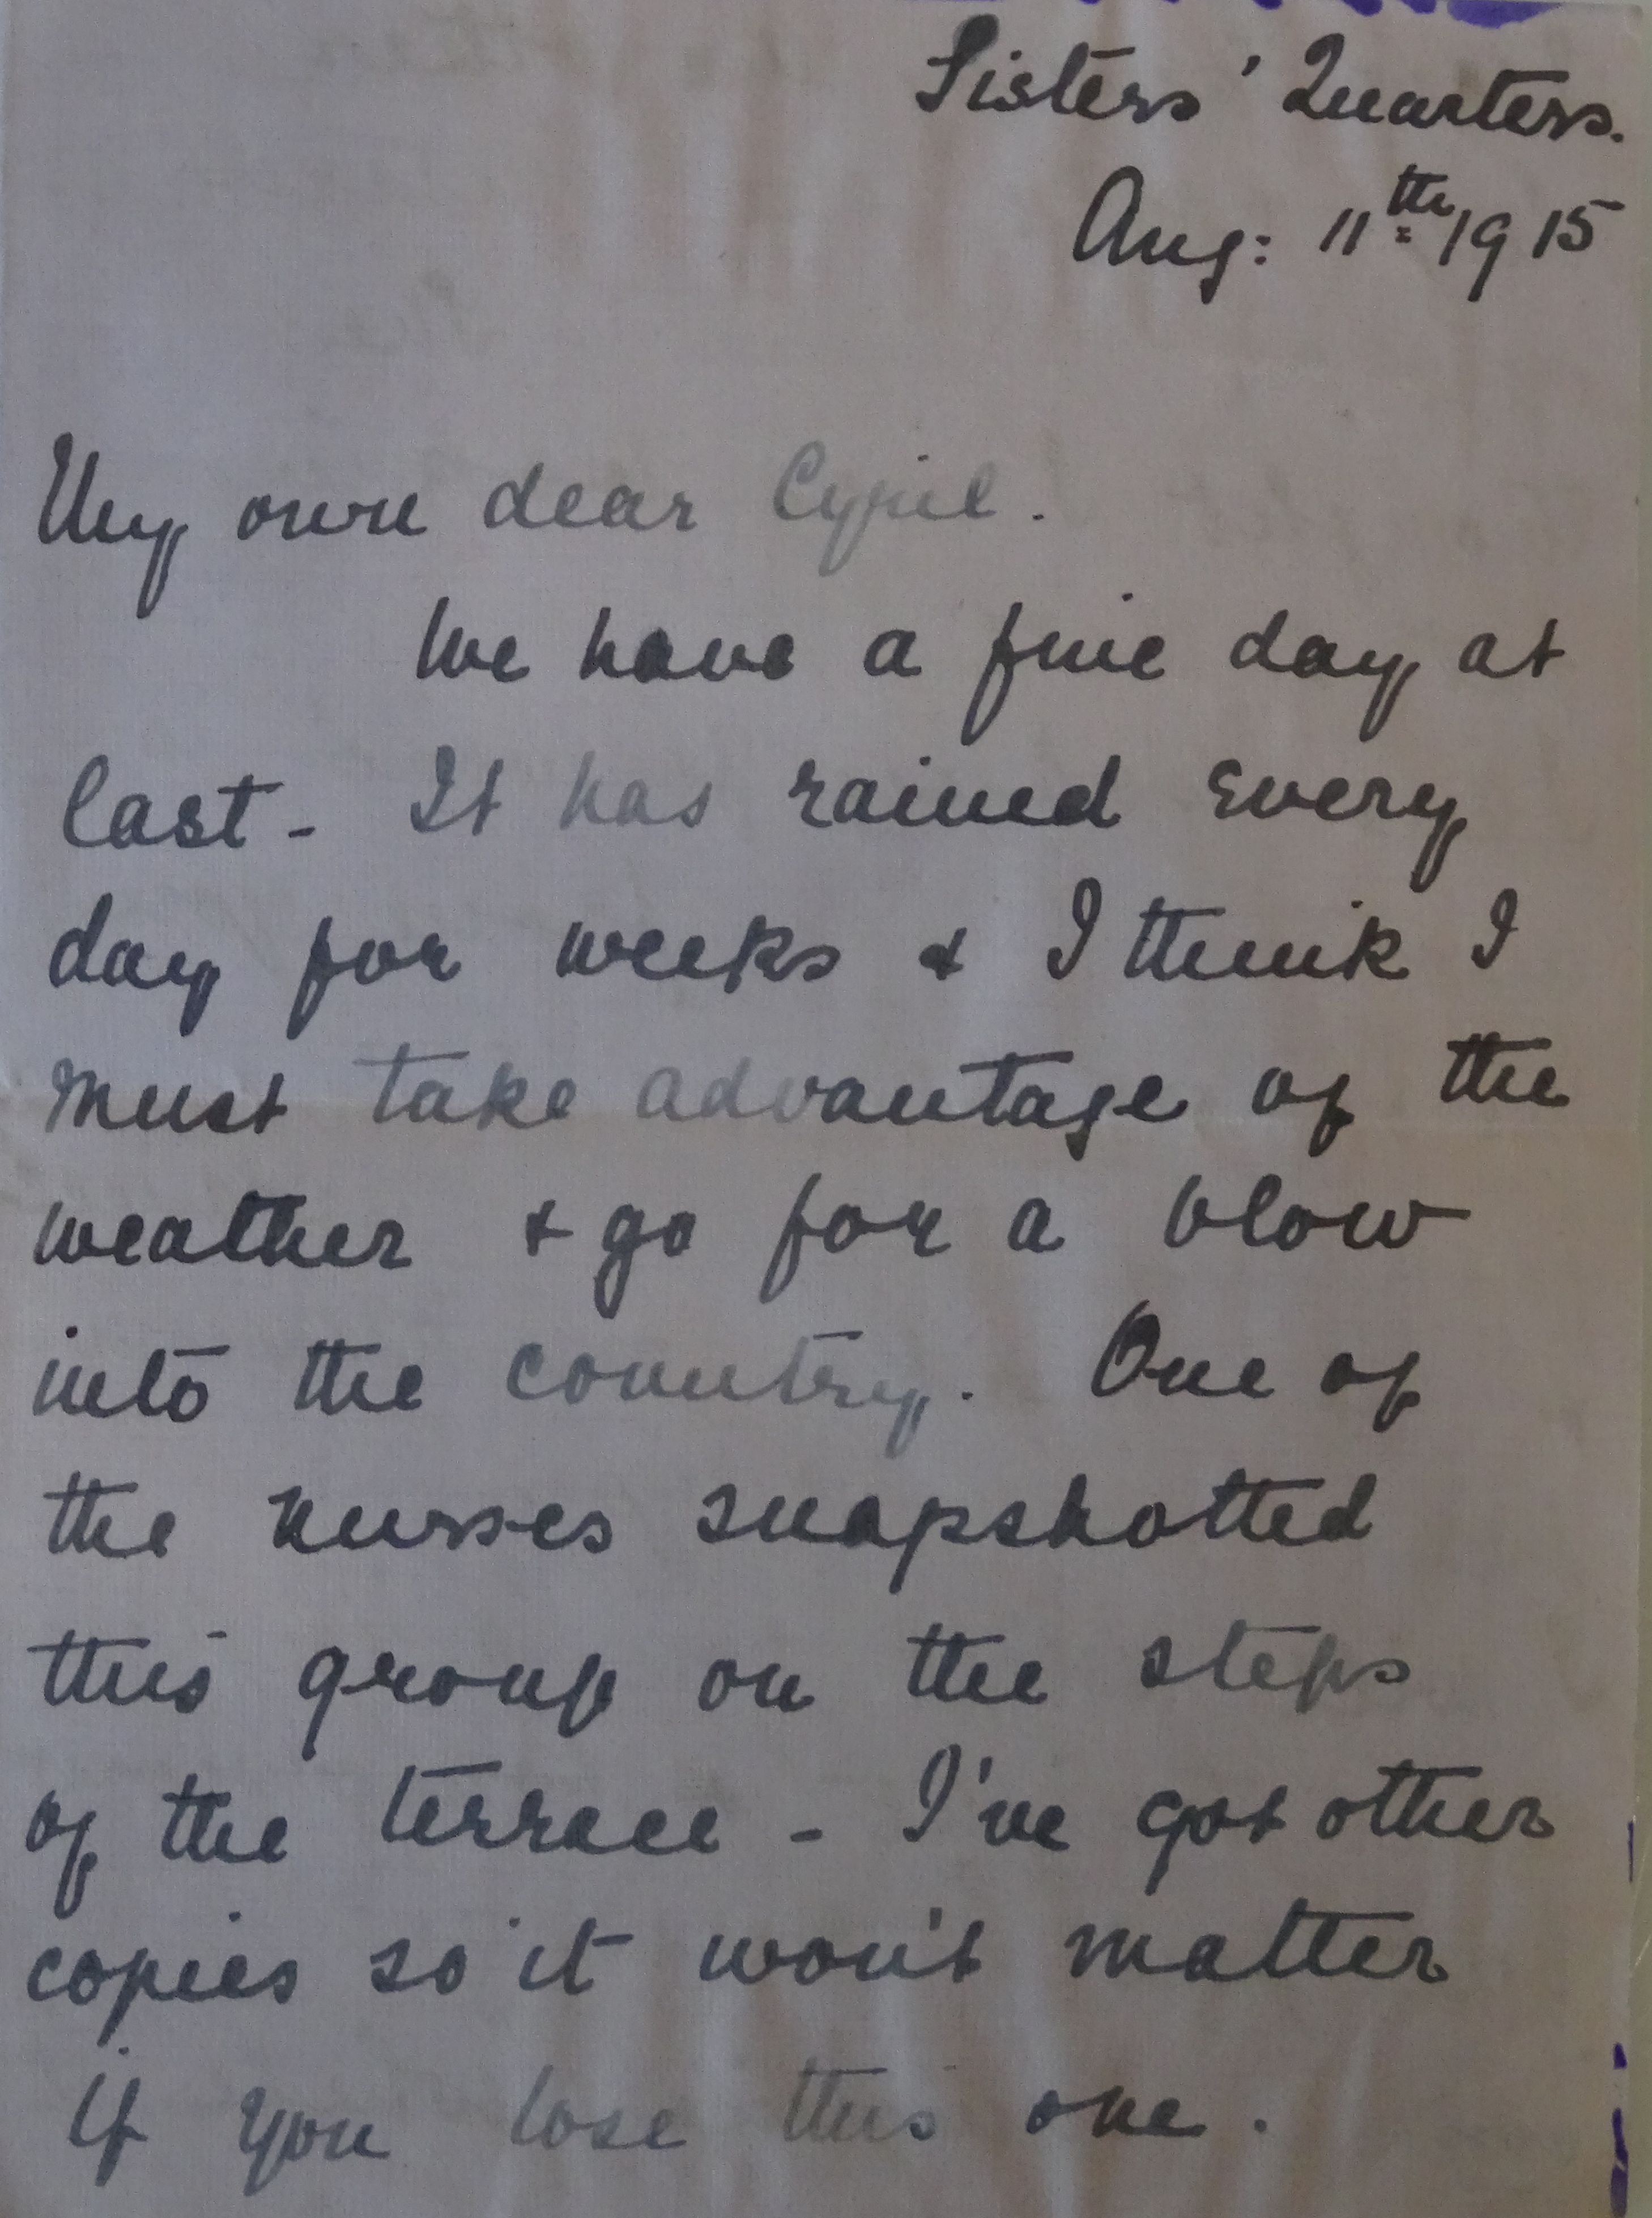 Sisters' Quarters.
Aug: 11th 1915
My own dear Cyril.
We have a fine day at
last - It has rained every
day for weeks & I think I
must take advantage of the
weather & go for a blow
into the country. One of
the nurses snapshotted
this group on the steps
of the terrace - I've got other
copies so it won't matter
if you lose this one.